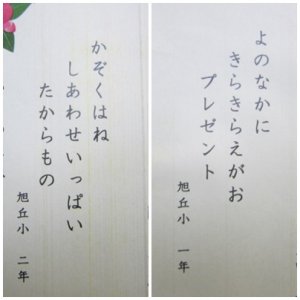 かぞくはね
しあわせいっぱい
たからもの
旭丘小 二年
よのなかに
きらきらえがお
プレゼント
旭丘小 一年